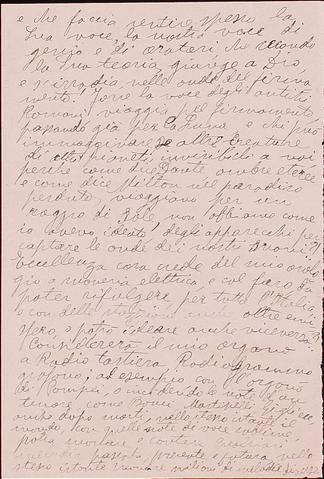 e che faccia sentire spesso la
Sua voce, la nostra voce di
genio e di oratori, che secondo
la Sua teoria, giunge a Dio
e s'irradia nelle onde del firma
mento. Forse la voce degli antichi
Romani viaggia pel firmamento,
passando già per la Luna, o chi può
immaginare le altre creature
di altri pianeti, invisibili a noi
perché come dice Dante ombre eteree
e come dice Milton nel paradiso
perduto, viaggiano per un
raggio di Sole, non abbiamo come
io avevo ideato degli apparecchi per
captare le onde dei nostri
Eccellenza cosa crede del mio orolo
gio a nuoveria elettrica, e col faro da
poter rifulgere per tutta l'Italia,
e con delle anche oltre
spero, e potrò ideare anche viceversa
Considererà il mio organo
a Radio tastiera, Radio grammo
grafono; ad esempio con l'organo
di Pompei, incidendo le note d'un
tenore come Bonci, Martinelli, Gigli ecc.
anche dopo morti, nello stesso istante il
mondo, con quelle note di voce
potrà suonare e cantare
melodia passata, presente e futura, nello
stesso istante suonare milioni di melodie